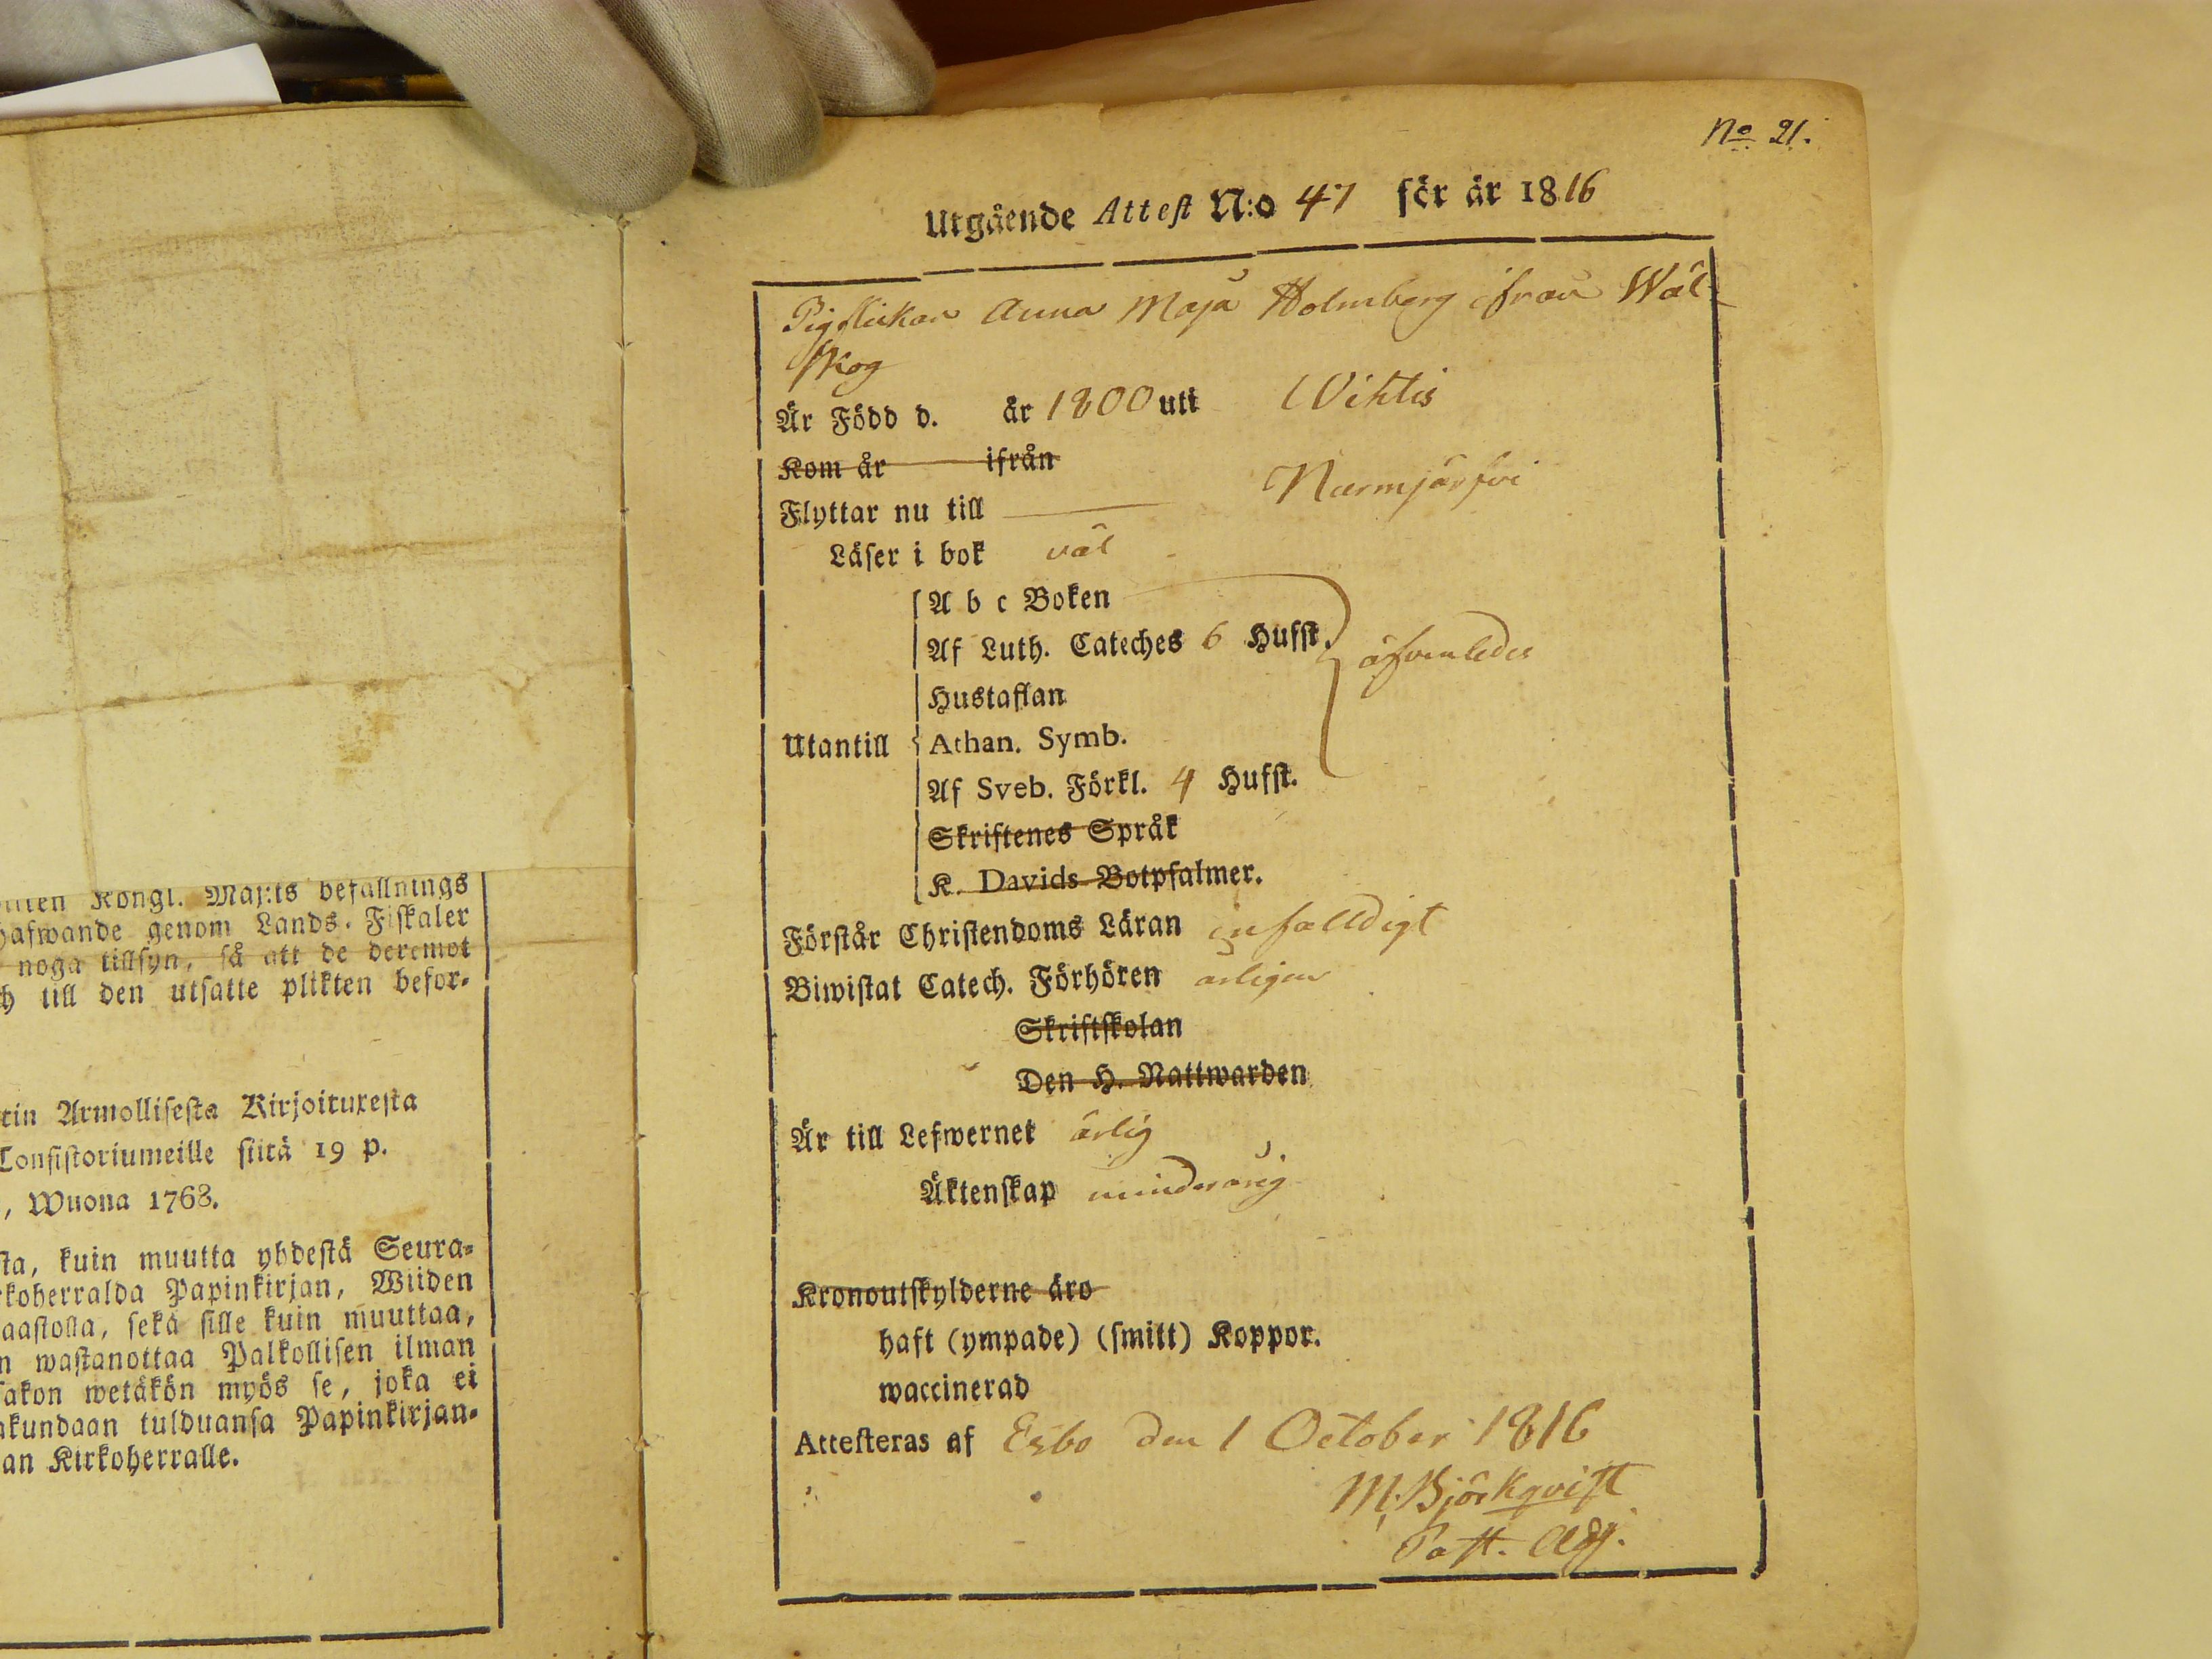 Kongl. Maj:ts befallnings
hafwande genom Lands-Fiskaler
noga tillsyn, så att de deremot
till den utsatte plikten befor-
Armollisesta Kirjoituxesta
Consistoriumeille siitä 19 p.
, Wuona 1768.
kuin muutta yhdestä Seura-
Papinkirjan, Wiiden
sekä sille kuin muuttaa,
wastanottaa Palkollisen ilman
wetäkön myös se, joka ei
tulduansa Papinkirjan-
an Kirkoherralle.
No 21.
Utgående Attest N:o 47 för år 1816
Pigflickan Anna Maja Holmberg ifrån Wäl-
skog
Är Född d. år 1800 uti Wihtis
Kom år ifrån
Flyttar nu till Nurmijärfvi
Läser i bok väl
A b c Boken
Af Luth. Cateches 6 Hufst. äfvenledes
Hustaflan
Utantill Athan. Symb.
Af Sveb. Förkl. 4 Hufst.
Skriftenes Språk
K. Davids Botpsalmer.
Förstår Christendoms Läran enfalldigt
Biwistat Catech. Förhören årligen
Skriftskolan
Den H. Nattwarden
Är till Lefwernet ärlig
Äktenskap minderårig
Kronoutskylderne äro
haft (ympade) (smitt) Koppor.
waccinerad
Attesteras af Esbo den 1 October 1816
M. Björkqvist
Past. Adj.